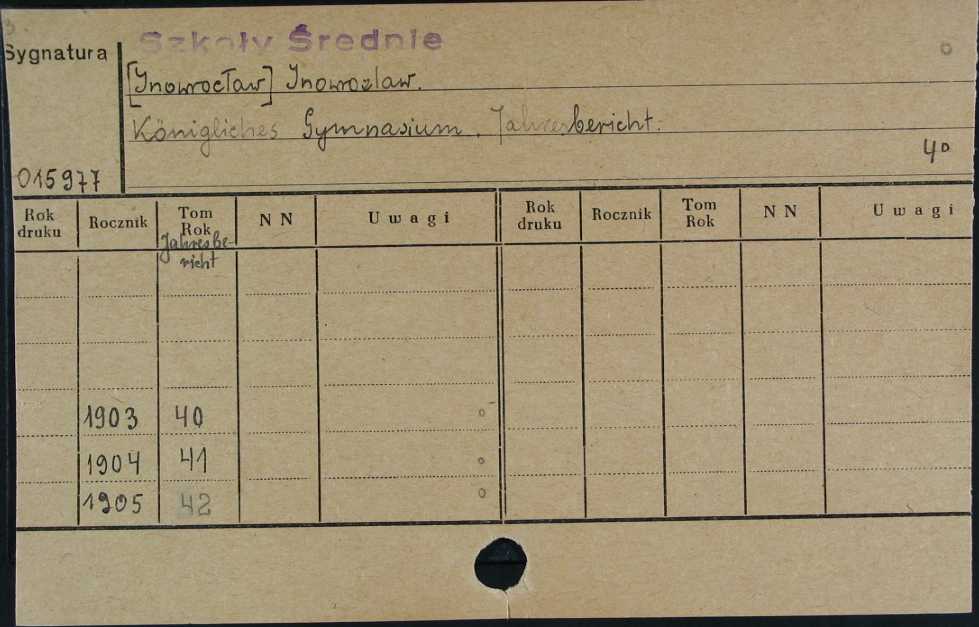 Szkoły Średnie
Sygnatura
[Inowrocław] Inowrazlaw.
Königliches Gymnasium. Jahresbericht.
4°
015977
Rok druku Rocznik Tom Rok N N Uwagi Rok druku Rocznik Tom Rok N N Uwagi
Jahresbe-
richt
1903 40
1904 41
1905 42